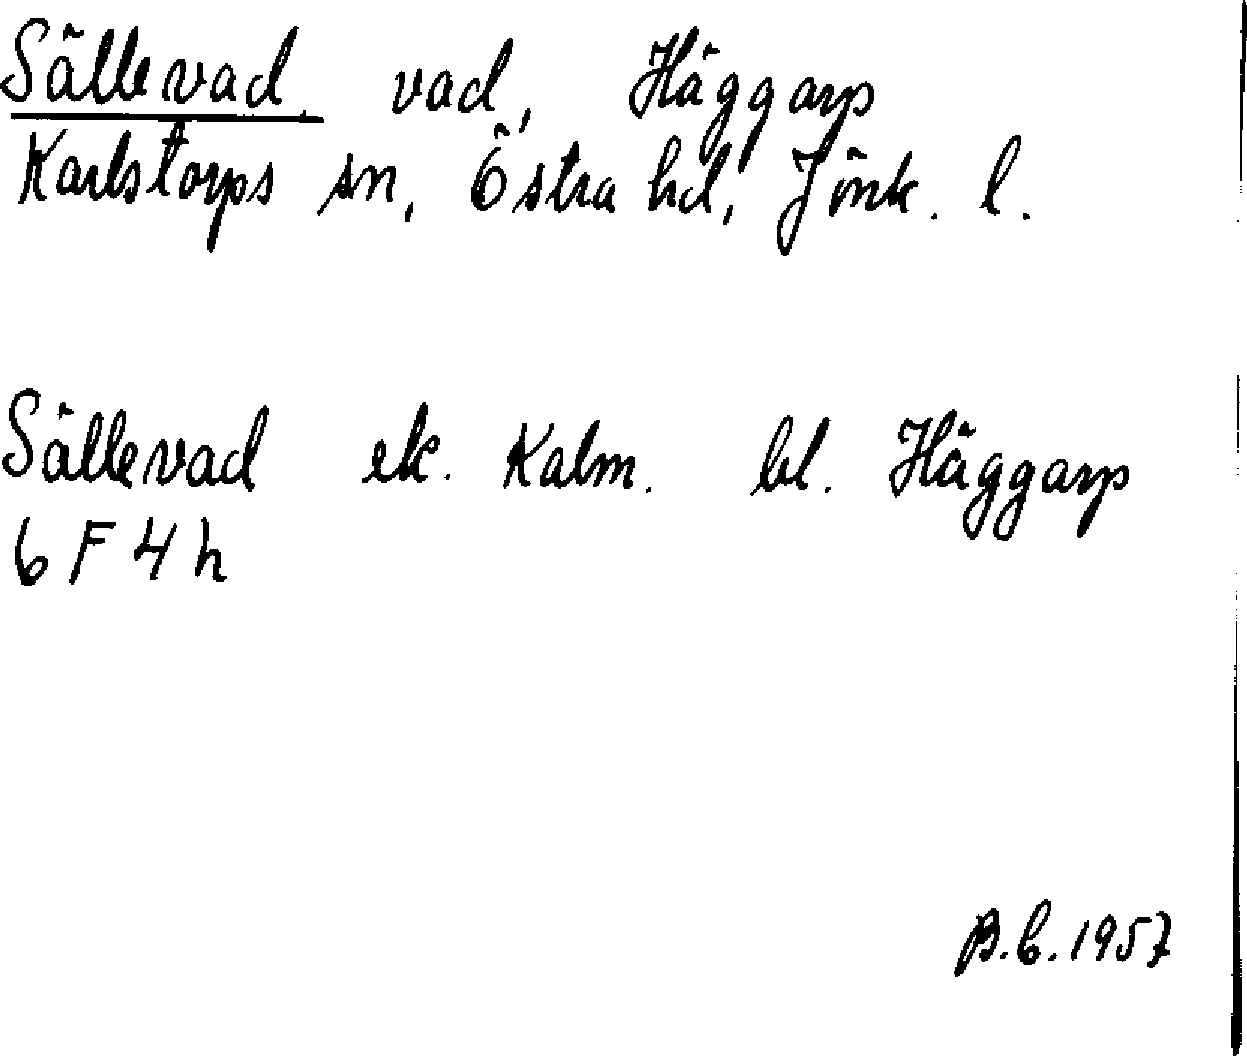 Sällevad, vad, Häggarp
Karlstorps sn, Östra hd, Jönk. l.
Sällevad ek. Kalm. bl. Häggarp
6 F 4 h
B.C. 1957